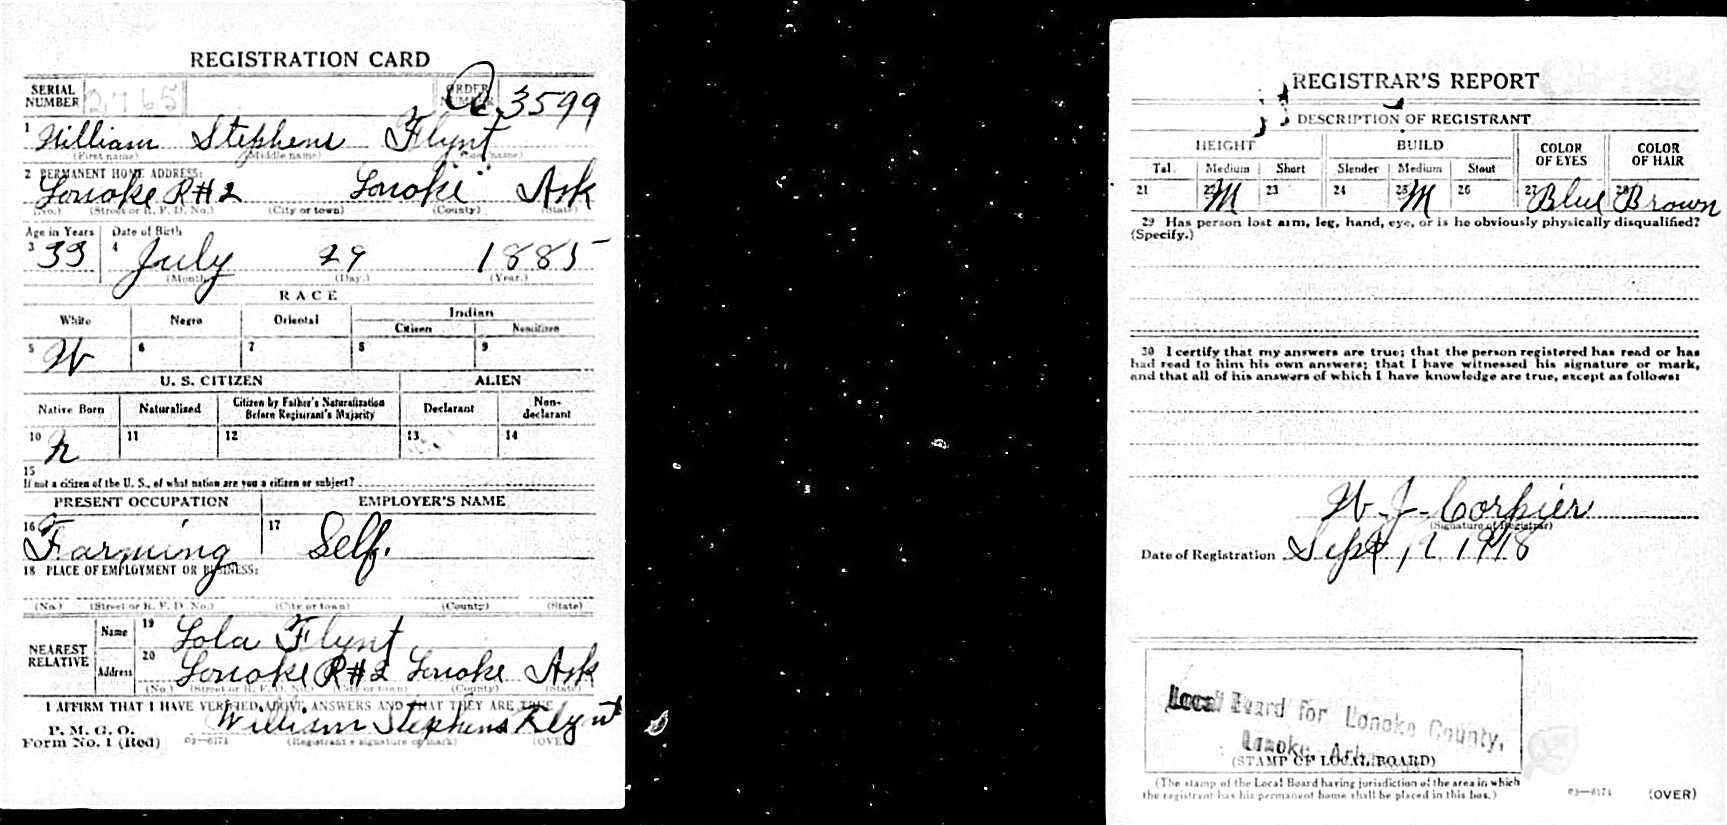 REGISTRATION CARD
SERIAL NUMBER 2765 ORDER NUMBER 3599
1 William Stephens Flynt
(First name) (Middle name) (Last name)
2 PERMANENT HOME ADDRESS:
Lonoke R#2 Lonoke Ark
(No.) (Street or R. F. D. No.) (City or town) (County) (State)
Age in Years Date of Birth
3 33 4 July 29 1885
(Month.) (Day.) (Year.)
RACE
White Negro Oriental Indian
Citizen Noncitizen
5 W 6 7 8 9
U. S. CITIZEN ALIEN
Native Born Naturalized Citizen by Father's Naturalization Before Registrant's Majority Declarant Non-declarant
10 N 11 12 13 14
15
If not a citizen of the U. S., of what nation are you a citizen or subject?
PRESENT OCCUPATION EMPLOYER'S NAME
16 Farming 17 Self.
18 PLACE OF EMPLOYMENT OR BUSINESS:
(No.) (Street or R. F. D. No.) (City or town) (County) (State)
NEAREST RELATIVE Name 19 Lola Flynt
Address 20 Lonoke R#2 Lonoke Ark
(No.) (Street or R. F. D. No.) (City or town) (County) (State)
I AFFIRM THAT I HAVE VERIFIED ABOVE ANSWERS AND THAT THEY ARE TRUE
P. M. G. O.
Form No. 1 (Red) 03—6171 William Stephens Flynt
(Registrant's signature or mark) (OVER)
REGISTRAR'S REPORT
DESCRIPTION OF REGISTRANT
HEIGHT BUILD COLOR OF EYES COLOR OF HAIR
Tall Medium Short Slender Medium Stout
21 22 M 23 24 25 M 26 27 Blue 28 Brown
29 Has person lost arm, leg, hand, eye, or is he obviously physically disqualified?
(Specify.)
30 I certify that my answers are true; that the person registered has read or has
had read to him his own answers; that I have witnessed his signature or mark,
and that all of his answers of which I have knowledge are true, except as follows:
W. J. Corpier
(Signature of Registrar)
Date of Registration Sept 12 1918
Local Board for Lonoke County,
Lonoke, Ark
(STAMP OF LOCAL BOARD)
(The stamp of the Local Board having jurisdiction of the area in which
the registrant has his permanent home shall be placed in this box.)
03—6171 (OVER)